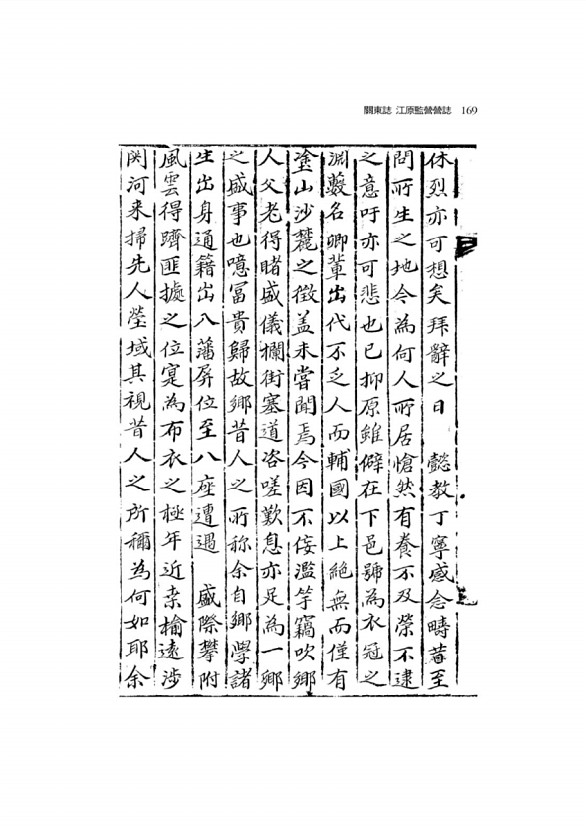 關東誌 江原監營營誌 169
休烈亦可想矣拜辭之日 懿教丁寧感念疇昔至
問所生之地今為何人所居愴然有養不及榮不逮
之意吁亦可悲也已抑原雖僻在下邑號為衣冠之
淵藪名卿輩出代不乏人而輔國以上絶無而僅有
塗山沙麓之徵盖未嘗聞焉今因不侫濫竽竊吹鄉
人父老得睹盛儀攔街塞道咨嗟歎息亦足為一鄉
之盛事也噫冨貴歸故鄉昔人之所称余自鄉學諸
生出身通籍出入藩屏位至八座遭遇 盛際攀附
風雲得躋匪據之位寔為布衣之極年近桒榆遠涉
関河来掃先人塋域其視昔人之所稱為何如耶余